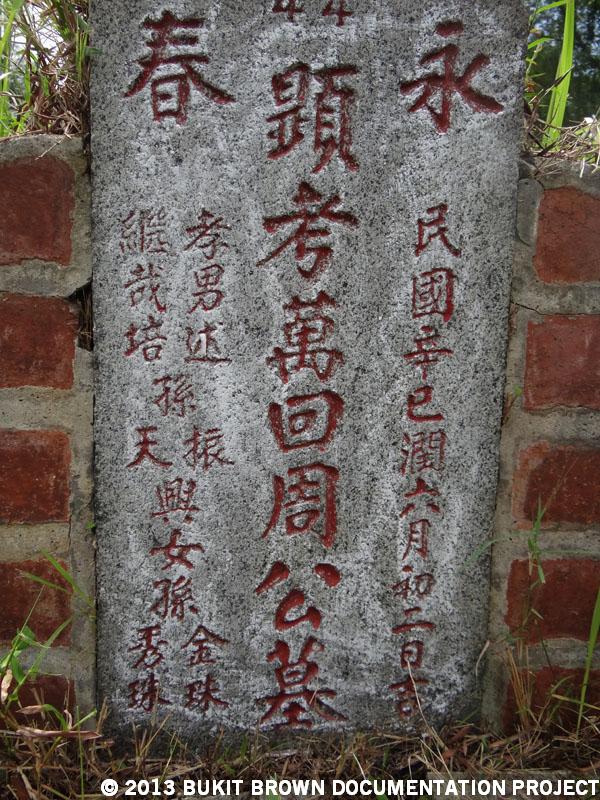 永春
民國辛巳潤六月初二日吉
顯考萬回周公墓
孝男述
繼哉培
孫振
天興
女孫
金珠
秀珠
© 2013 BUKIT BROWN DOCUMENTATION PROJECT